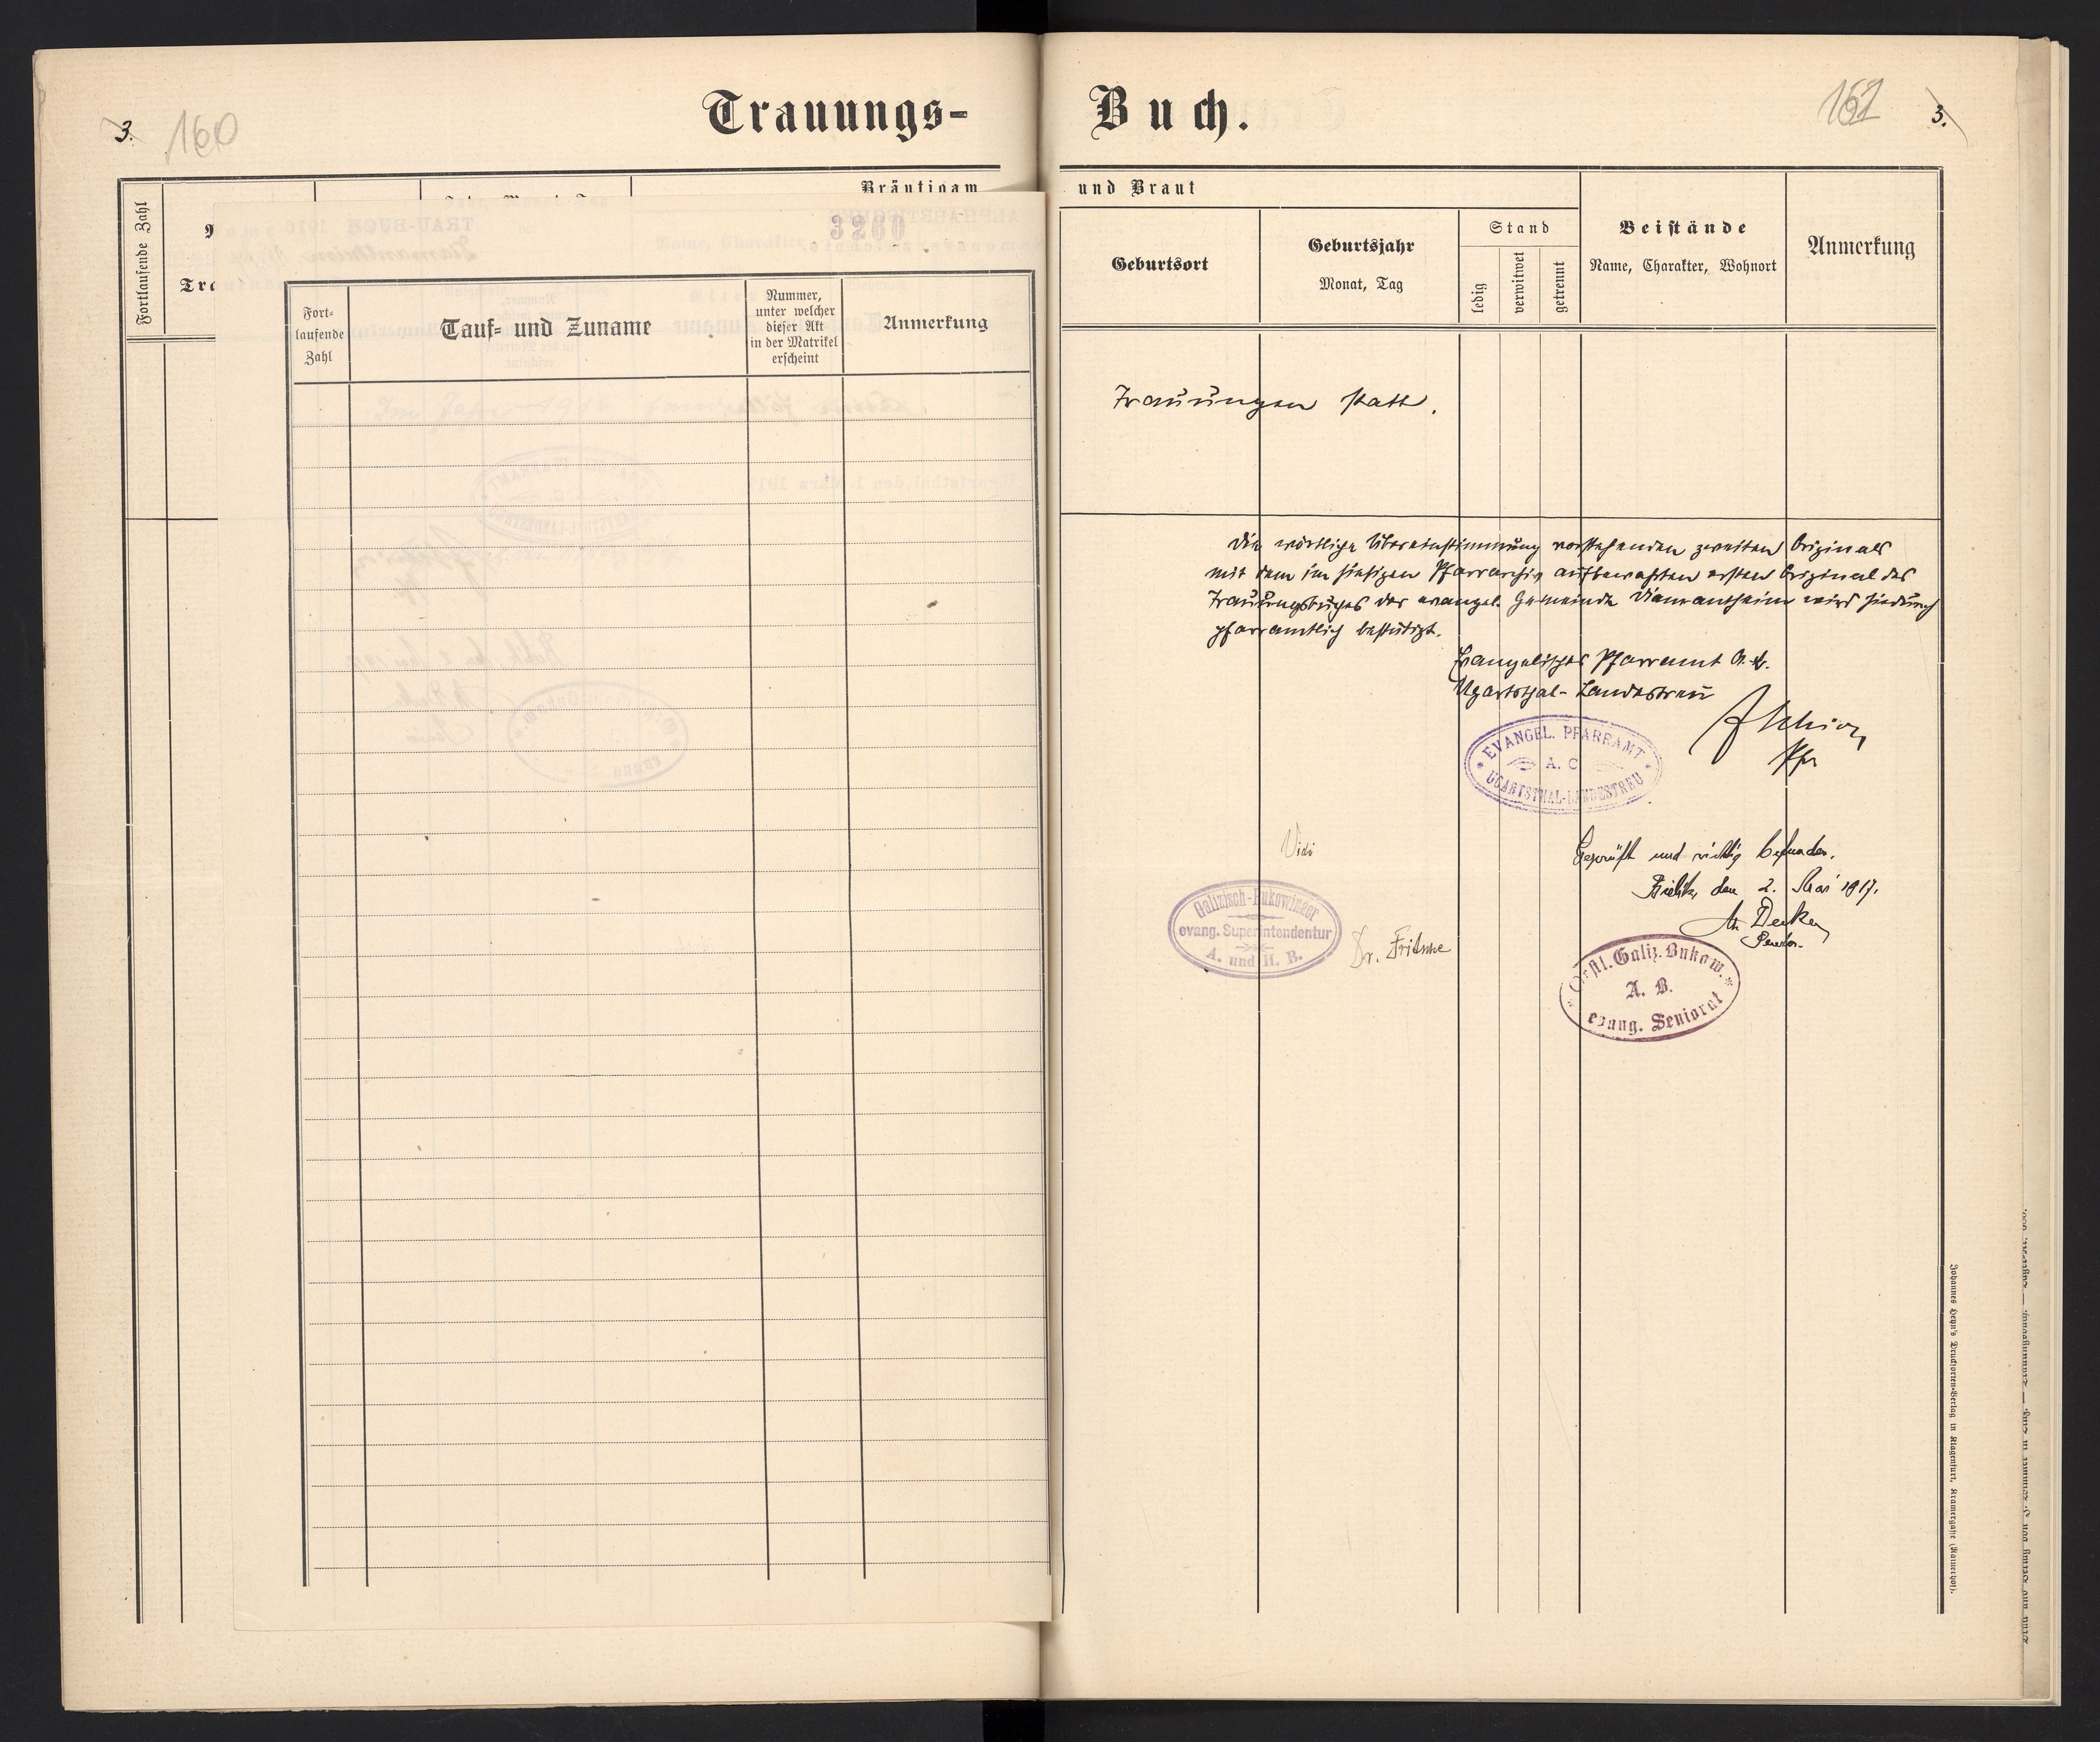 3. 160
Trauungs-
Bräutigam
Fortlaufende Zahl
Tra
3260
Fort-
laufende
Zahl
Tauf- und Zuname
Nummer,
unter welcher
dieser Akt
in der Matrikel
erscheint
Anmerkung
Buch.
161 3.
und Braut
Geburtsort
Geburtsjahr
Monat, Tag
Stand
ledig
verwitwet
getrennt
Beistände
Name, Charakter, Wohnort
Anmerkung
Trauungen statt.
Die wörtliche Übereinstimmung vorstehenden zweiten Originals
mit dem im hiesigen Pfarrarchiv aufbewahrten ersten Original des
Trauungsbuches der evangel. Gemeinde Diamantheim wird hiedurch
pfarramtlich bestätigt.
Evangelisches Pfarramt A. C.
Ugartsthal-Landestreu
Pfr
EVANGEL. PFARRAMT
A. C.
UGARTSTHAL-LANDESTREU
Vidi
Geprüft und richtig befunden.
Bielitz, den 2. Mai 1917.
Senior.
Galizisch-Bukowinaer
evang. Superintendentur
A. und H. B.
Dr. Fritsche
Oestl. Galiz. Bukow.
A. B.
evang. Seniorat
Johannes Heyn's Drucksorten-Verlag in Klagenfurt, Kramergasse (Kaiserhof).